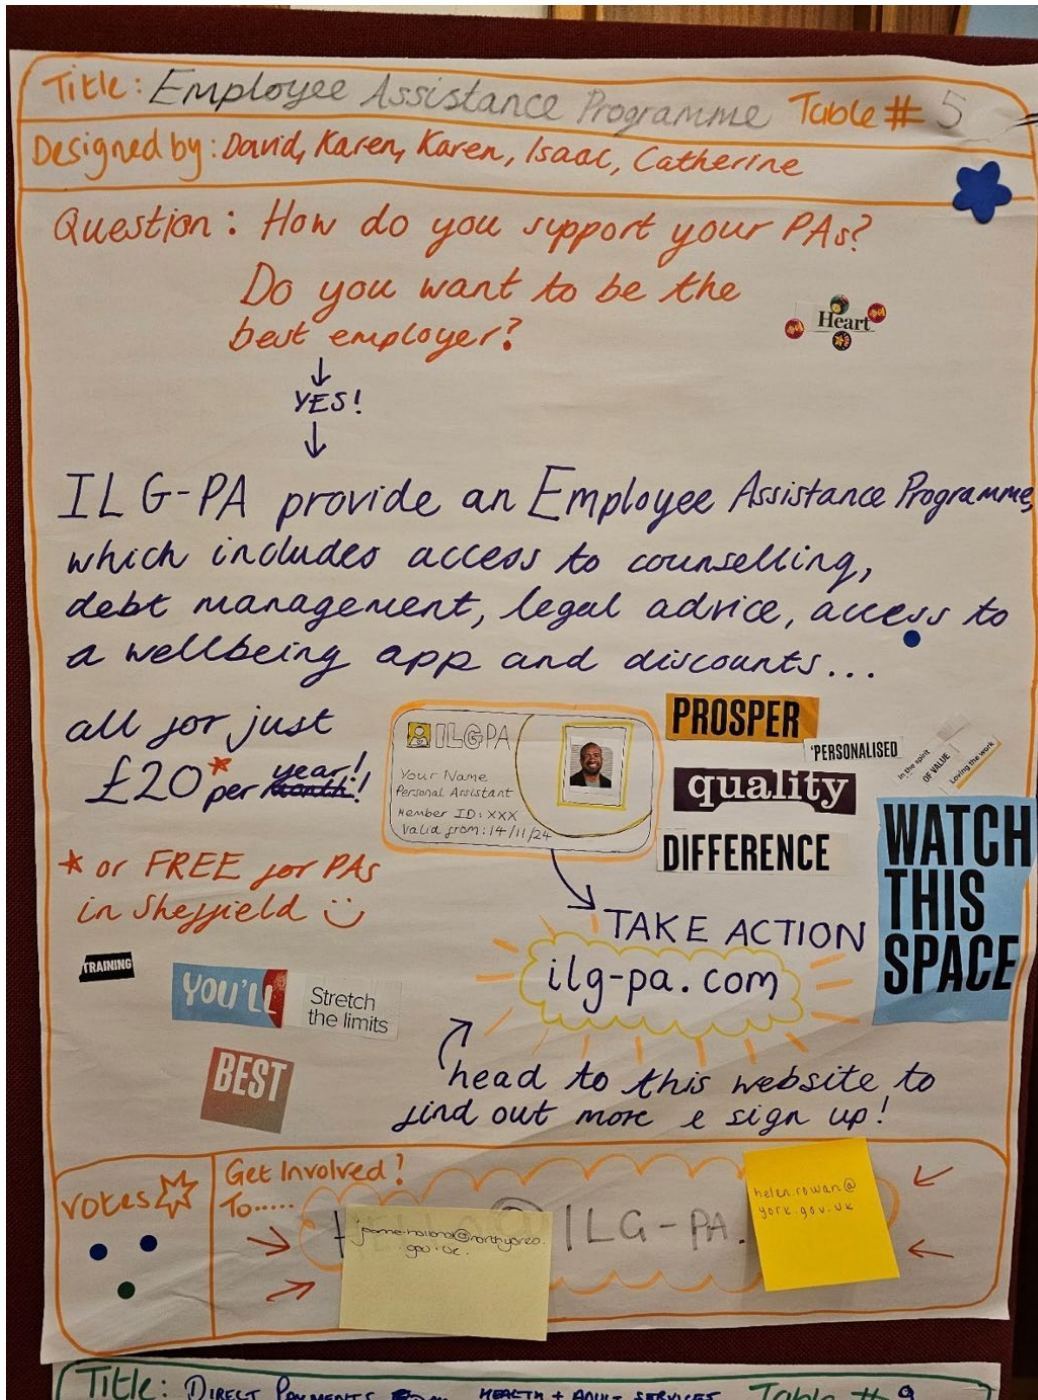 Title: Employee Assistance Programme Table # 5
Designed by: David, Karen, Karen, Isaac, Catherine
Question: How do you support your PAs?
Do you want to be the
best employer?
Heart
YES!
ILG-PA provide an Employee Assistance Programme,
which includes access to counselling,
debt management, legal advice, access to
a wellbeing app and discounts...
all for just
£20* per month year!!
* or FREE for PAs
in Sheffield
ILG PA
Your Name
Personal Assistant
Member ID: XXX
Valid from: 14/11/24
PROSPER
'PERSONALISED
In the spirit
OF VALUE
Loving the work
quality
DIFFERENCE
WATCH
THIS
SPACE
TAKE ACTION
ilg-pa.com
head to this website to
find out more & sign up!
TRAINING
YOU'LL
Stretch
the limits
BEST
Votes
Get Involved?
To.....
@ILG-PA.
gov.uk
helen.rowan@
york.gov.uk
Title: DIRECT PAYMENTS HEALTH + ADULT SERVICES Table # 9